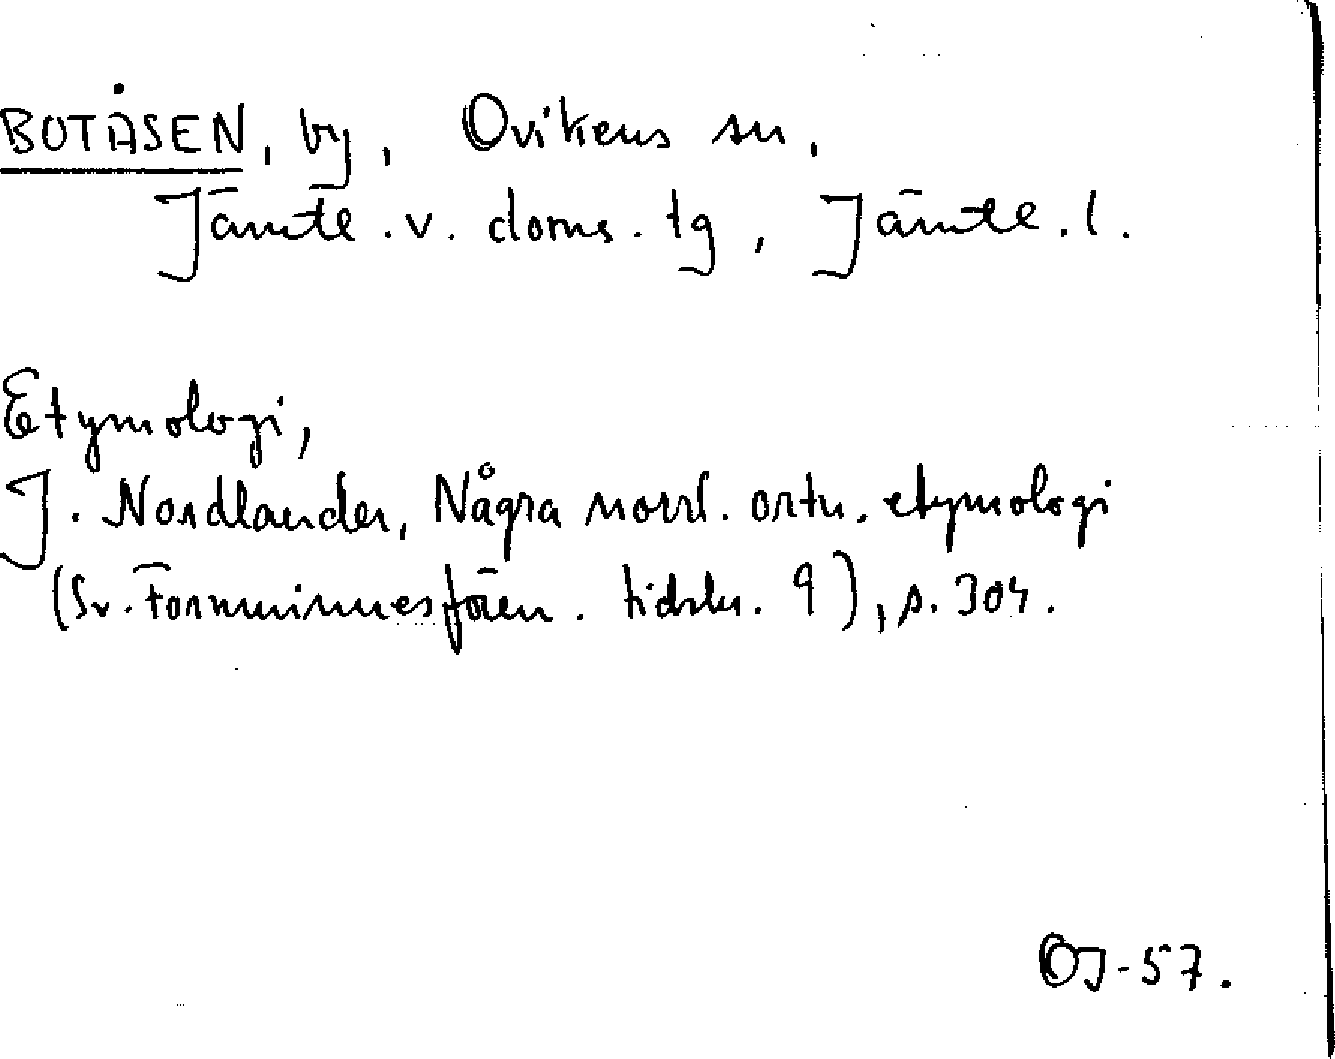 BOTÅSEN, by, Ovikens sn,
Jämtl. v. doms. tg, Jämtl. l.
Etymologi,
J. Nordlander, Några norrl. ortn. etymologi
(Sv. Fornminnesfören. tidskr. 9), s. 304.
OJ-57.